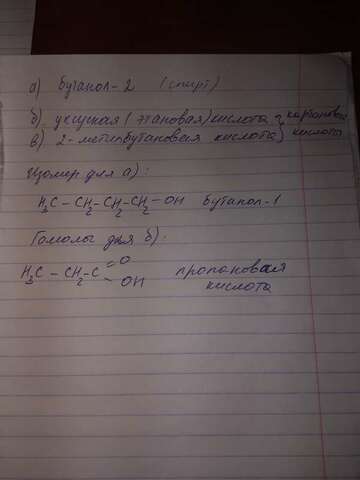 а) бутанол-2 (спирт)
б) уксусная (этановая) кислота } карбоновые
в) 2-метилбутановая кислота } кислоты
Изомер для а):
H₃C – CH₂ – CH₂ – CH₂ – OH бутанол-1
Гомологи для б):
H₃C – CH₂ – C =O – OH пропановая
кислота